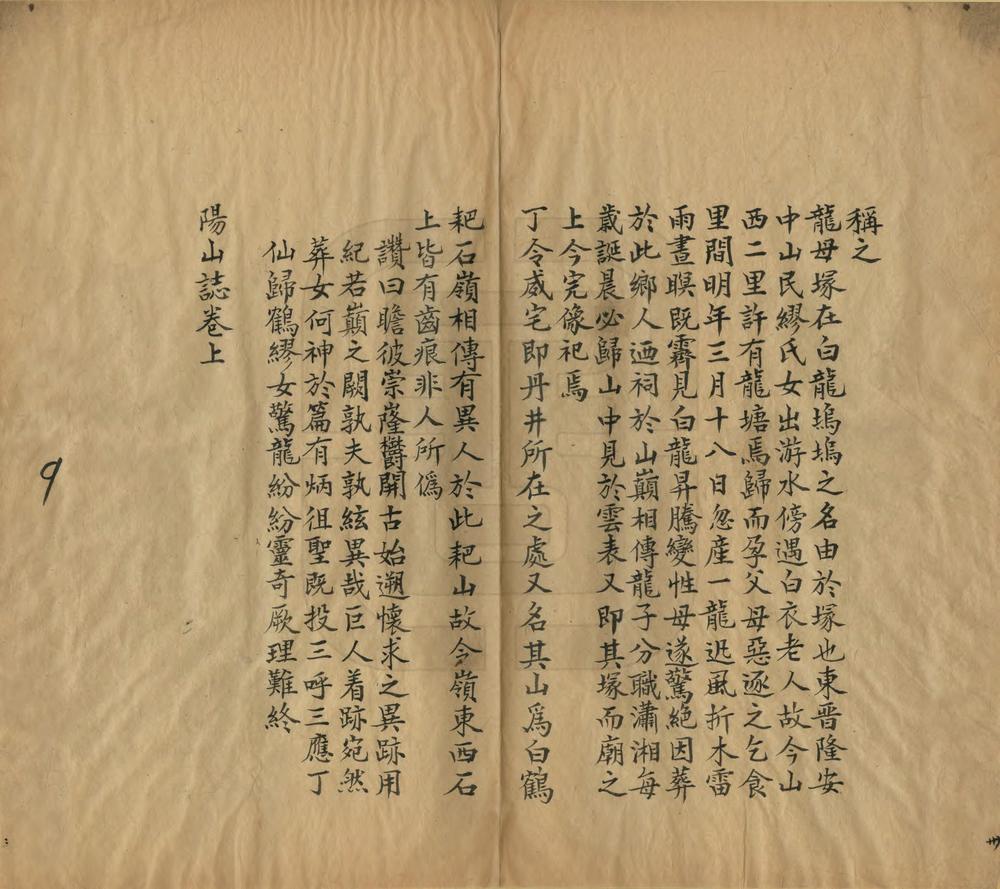 稱之
龍母塚在白龍塢塢之名由於塚也東晋隆安
中山民繆氏女出游水傍遇白衣老人故今山
西二里許有龍塘焉歸而孕父母惡逐之乞食
里間明年三月十八日忽産一龍迅風折木雷
雨晝暝既霽見白龍昇騰變性母遂驚絕因葬
於此鄉人迺祠於山巔相傳龍子分職瀟湘每
歲誕晨必歸山中見於雲表又即其塚而廟之
上今完像祀焉
丁令威宅即丹井所在之處又名其山爲白鶴
耙石嶺相傳有異人於此耙山故今嶺東西石
上皆有齒痕非人所僞
讚曰瞻彼崇嶐欝開古始遡懷求之異跡用
紀若巔之闕孰夫孰絃異哉巨人着跡宛然
葬女何神於篇有炳徂聖既投三呼三應丁
仙歸鶴繆女驚龍紛紛靈奇厥理難終
陽山誌卷上
9